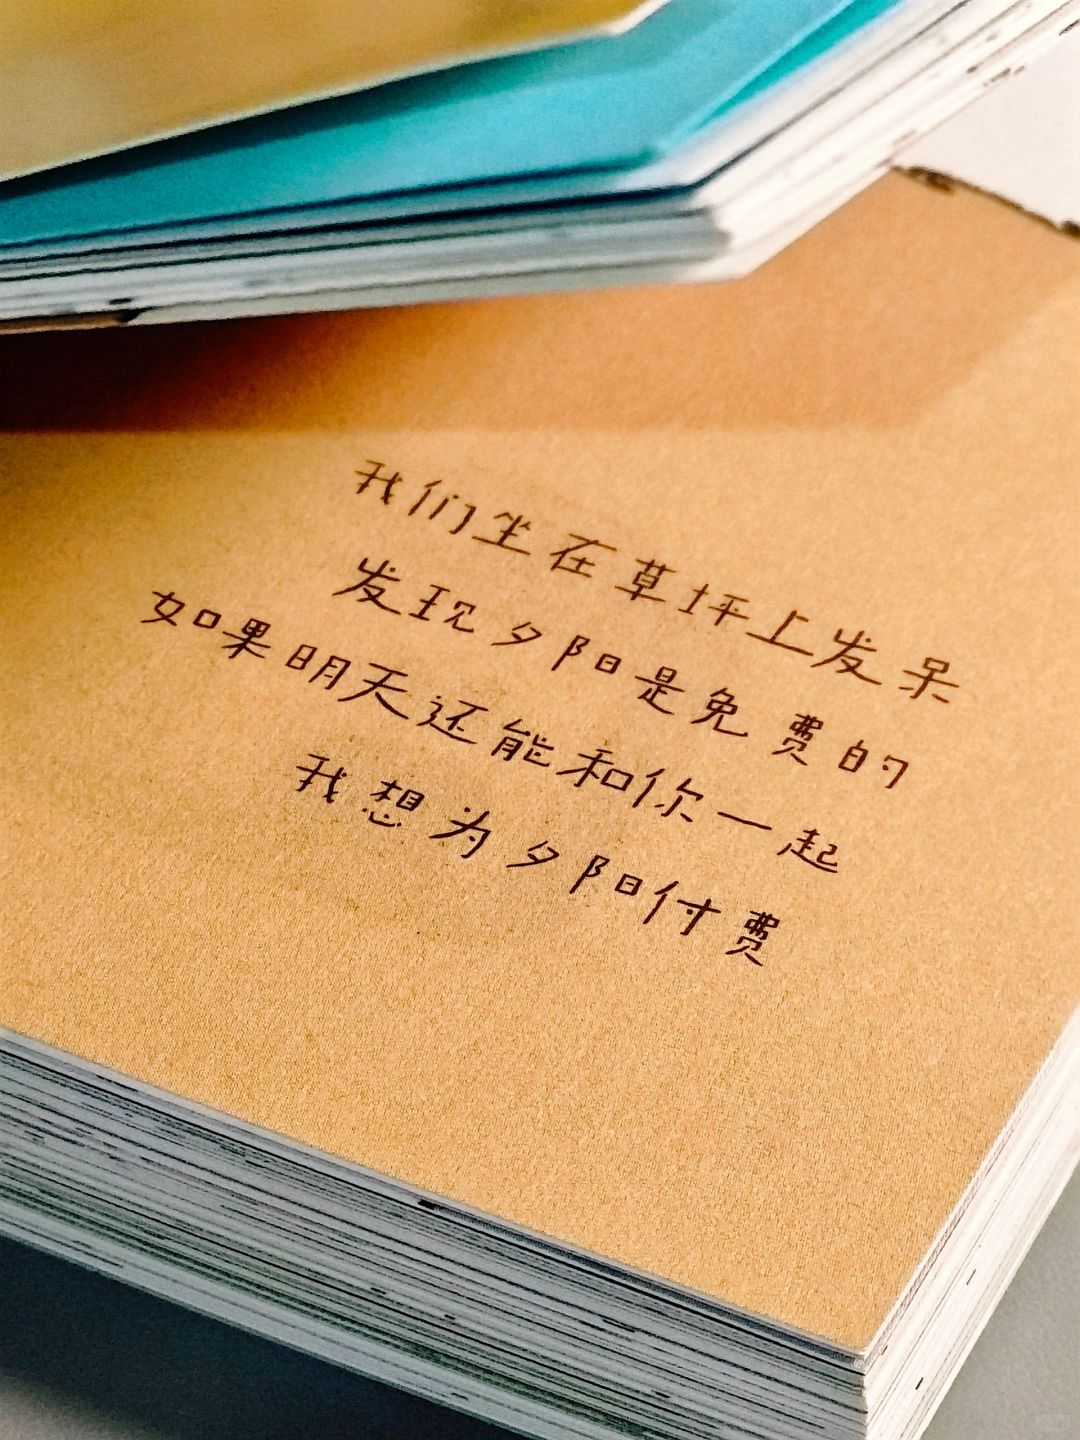 我们坐在草坪上发呆
发现夕阳是免费的
如果明天还能和你一起
我想为夕阳付费